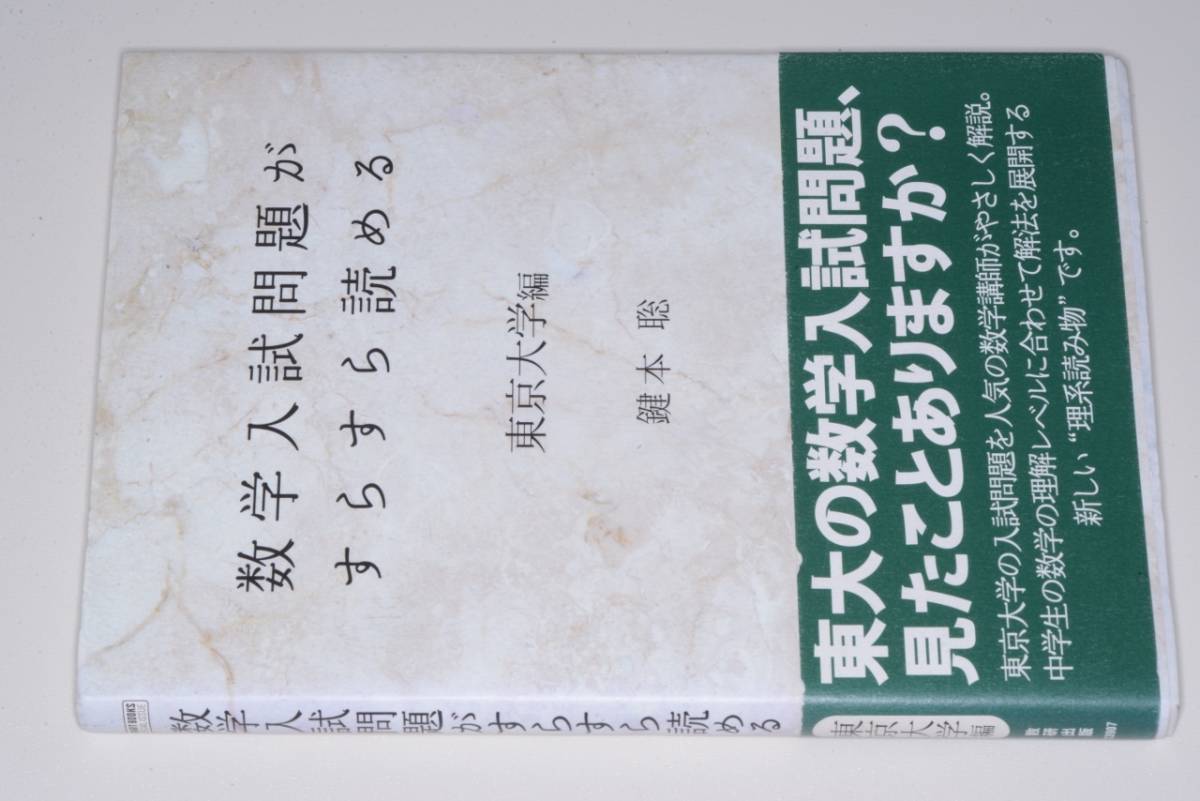 数学入試問題が
すらすら読める
東京大学編
鍵本 聡
東大の数学入試問題、
見たことありますか?
東京大学の入試問題を人気の数学講師がやさしく解説。
中学生の数学の理解レベルに合わせて解法を展開する
新しい“理系読み物”です。
数学入試問題がすらすら読める
東京大学編
数研出版